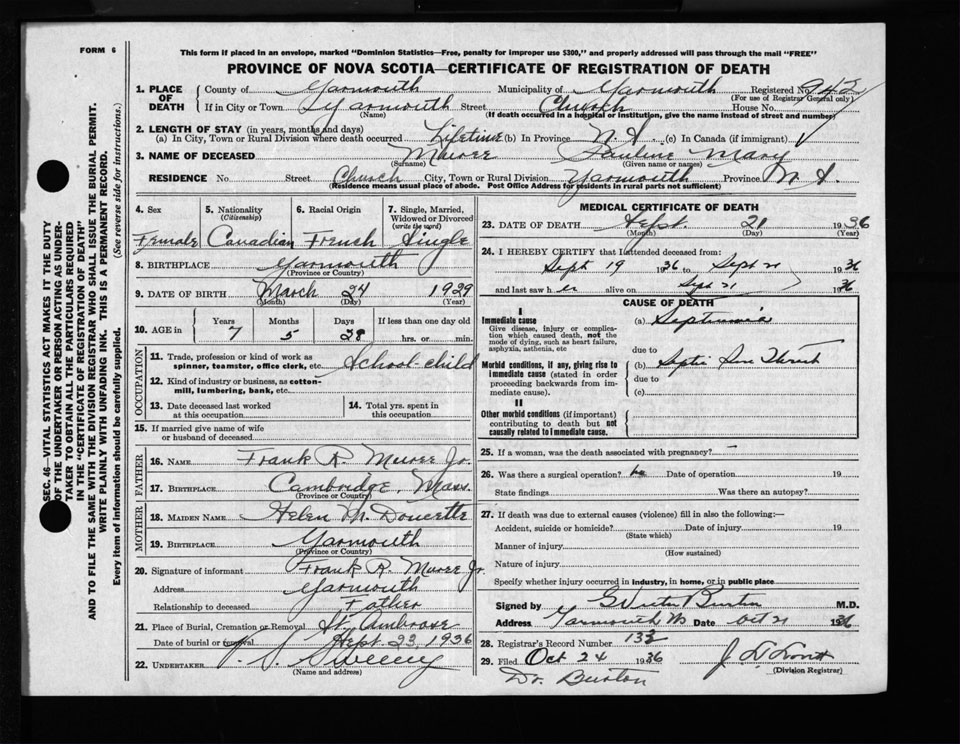 FORM 6
This form if placed in an envelope, marked "Dominion Statistics—Free, penalty for improper use $300," and properly addressed will pass through the mail "FREE"
PROVINCE OF NOVA SCOTIA—CERTIFICATE OF REGISTRATION OF DEATH
1. PLACE OF DEATH County of Yarmouth Municipality of Yarmouth Registered No. 942
(For use of Registrar General only)
If in City or Town Yarmouth Street Church House No.
(Name) (If death occurred in a hospital or institution, give the name instead of street and number)
2. LENGTH OF STAY (in years, months and days)
(a) In City, Town or Rural Division where death occurred Lifetime (b) In Province N.S. (c) In Canada (if immigrant)
3. NAME OF DECEASED Muree Pauline Mary
(Surname) (Given name or names)
RESIDENCE No. Street Church City, Town or Rural Division Yarmouth Province N.S.
(Residence means usual place of abode. Post Office Address for residents in rural parts not sufficient)
SEC. 46—VITAL STATISTICS ACT MAKES IT THE DUTY
OF THE UNDERTAKER OR PERSON ACTING AS UNDER-
TAKER TO OBTAIN ALL THE PARTICULARS REQUIRED
IN THE "CERTIFICATE OF REGISTRATION OF DEATH"
AND TO FILE THE SAME WITH THE DIVISION REGISTRAR WHO SHALL ISSUE THE BURIAL PERMIT.
WRITE PLAINLY WITH UNFADING INK. THIS IS A PERMANENT RECORD.
Every item of information should be carefully supplied. (See reverse side for instructions.)
4. Sex 5. Nationality 6. Racial Origin 7. Single, Married,
(Citizenship) Widowed or Divorced
(write the word)
Female Canadian French Single
8. BIRTHPLACE Yarmouth
(Province or Country)
9. DATE OF BIRTH March 24 1929
(Month) (Day) (Year)
10. AGE in Years Months Days If less than one day old
7 5 28 hrs. or min.
OCCUPATION
11. Trade, profession or kind of work as
spinner, teamster, office clerk, etc. School-child
12. Kind of industry or business, as cotton-
mill, lumbering, bank, etc.
13. Date deceased last worked
at this occupation
14. Total yrs. spent in
this occupation
15. If married give name of wife
or husband of deceased
FATHER
16. NAME Frank R. Muree Jr.
17. BIRTHPLACE Cambridge, Mass.
(Province or Country)
MOTHER
18. MAIDEN NAME Helen M. Doucette
19. BIRTHPLACE Yarmouth
(Province or Country)
20. Signature of informant Frank R. Muree Jr.
Address Yarmouth
Relationship to deceased Father
21. Place of Burial, Cremation or Removal St. Ambrose
Date of burial or removal Sept. 23, 1936
22. UNDERTAKER Sweeny
(Name and address)
MEDICAL CERTIFICATE OF DEATH
23. DATE OF DEATH Sept. 21 1936
(Month) (Day) (Year)
24. I HEREBY CERTIFY that I attended deceased from:
Sept 19 1936 to Sept 21 1936
and last saw her alive on Sept 21 1936
CAUSE OF DEATH
I
Immediate cause
Give disease, injury or complica-
tion which caused death, not the
mode of dying, such as heart failure,
asphyxia, asthenia, etc
(a) Septicemia
due to
Morbid conditions, if any, giving rise to
immediate cause (stated in order
proceeding backwards from im-
mediate cause).
(b) Septic Sore Throat
due to
(c)
II
Other morbid conditions (if important)
contributing to death but not
causally related to immediate cause.
25. If a woman, was the death associated with pregnancy? —
26. Was there a surgical operation? no Date of operation 19
State findings Was there an autopsy?
27. If death was due to external causes (violence) fill in also the following:—
Accident, suicide or homicide? Date of injury 19
(State which)
Manner of injury
(How sustained)
Nature of injury
Specify whether injury occurred in industry, in home, or in public place
Signed by Burton M.D.
Address Yarmouth NS Date Oct 21 1936
28. Registrar's Record Number 132
29. Filed Oct 24 1936
(Division Registrar)
Dr. Burton